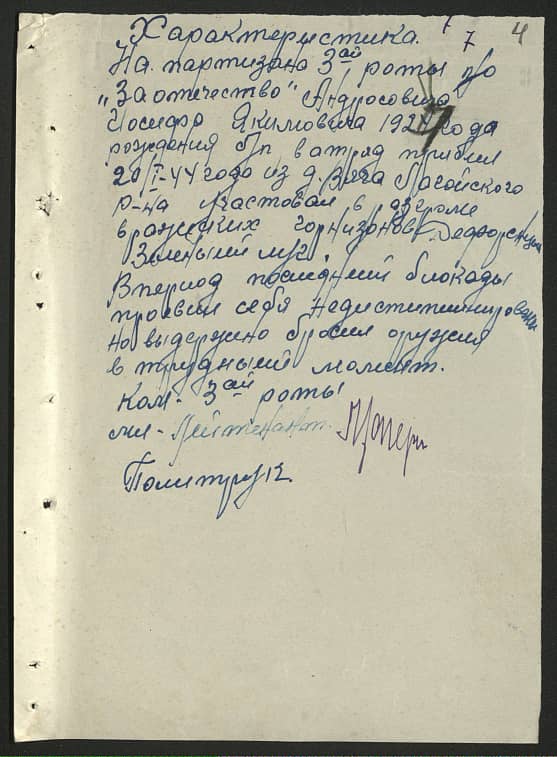 7
7 4
Характеристика.
На партизана 3ай роты п/о
"За отечество" Андросовича
Иосифа Якимовича 192 года
рождения б/п в атряд прибыл
20/I-44 года из д. Вяча Логойского
р-на Участвовал в разгроме
вражеских горнизонов
Зеленый луг.
В период последний блокады
проевил себя недистиплинирован
но выдержано бросил оружия
в трудный момент.
Ком- 3ай роты
мл- Лейтенант.
Политрук